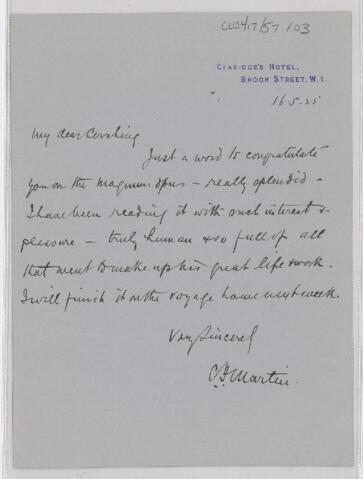 CUS417/57/103
CLARIDGE'S HOTEL,
BROOK STREET. W.1.
16.5.25
My dear Cushing
Just a word to congratulate
you on the magnum opus – really splendid –
I have been reading it with such interest &
pleasure – truly human & so full of all
that went to make up his great life & work.
I will finish it on the voyage home next week.
Very Sincerely
C.F. Martin.